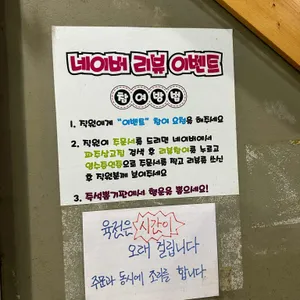 네이버 리뷰 이벤트
참여방법
1. 직원에게 "이벤트" 참여 요청을 해주세요
2. 직원이 주문서를 드리면 네이버에서
검색 후 리뷰참여를 누르고
영수증인증으로 주문서를 찍고 리뷰를 쓰신
후 직원분께 보여주세요
3. 즉석뽑기판에서 행운을 뽑으세요!
육전은 시간이
오래 걸립니다
주문과 동시에 조리를 합니다